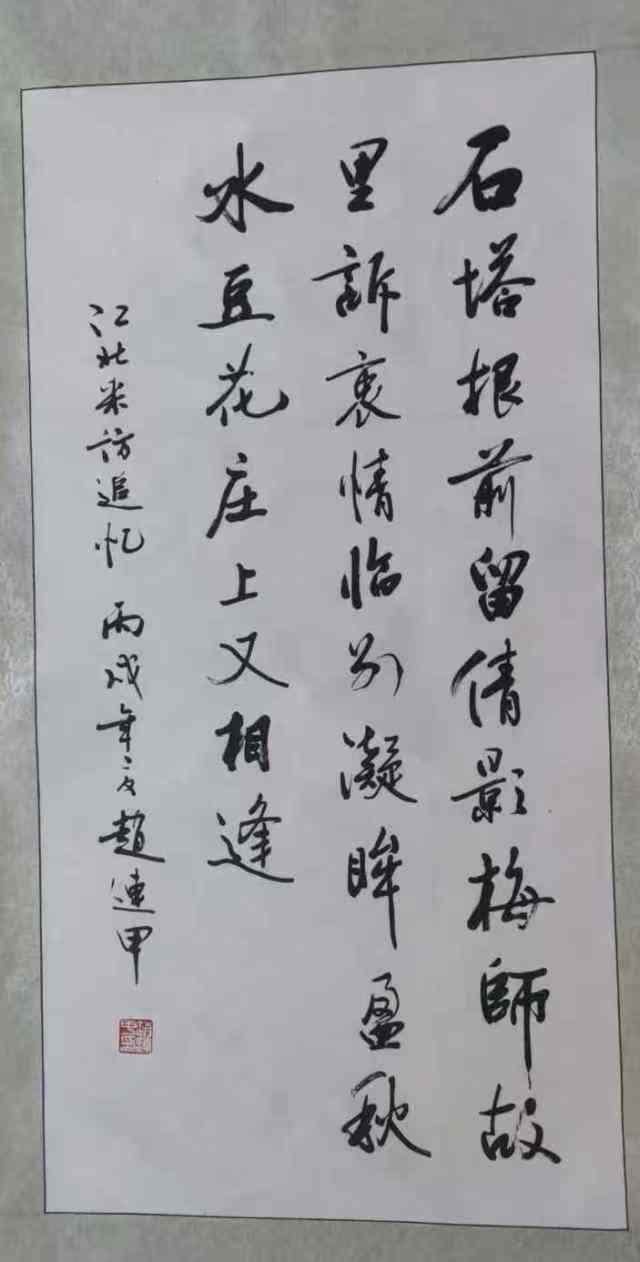 石塔根前留倩影梅師故
里訴衷情临别凝眸盈秋
水豆花庄上又相逢
江北采访追忆 丙戌年之夏趙連甲